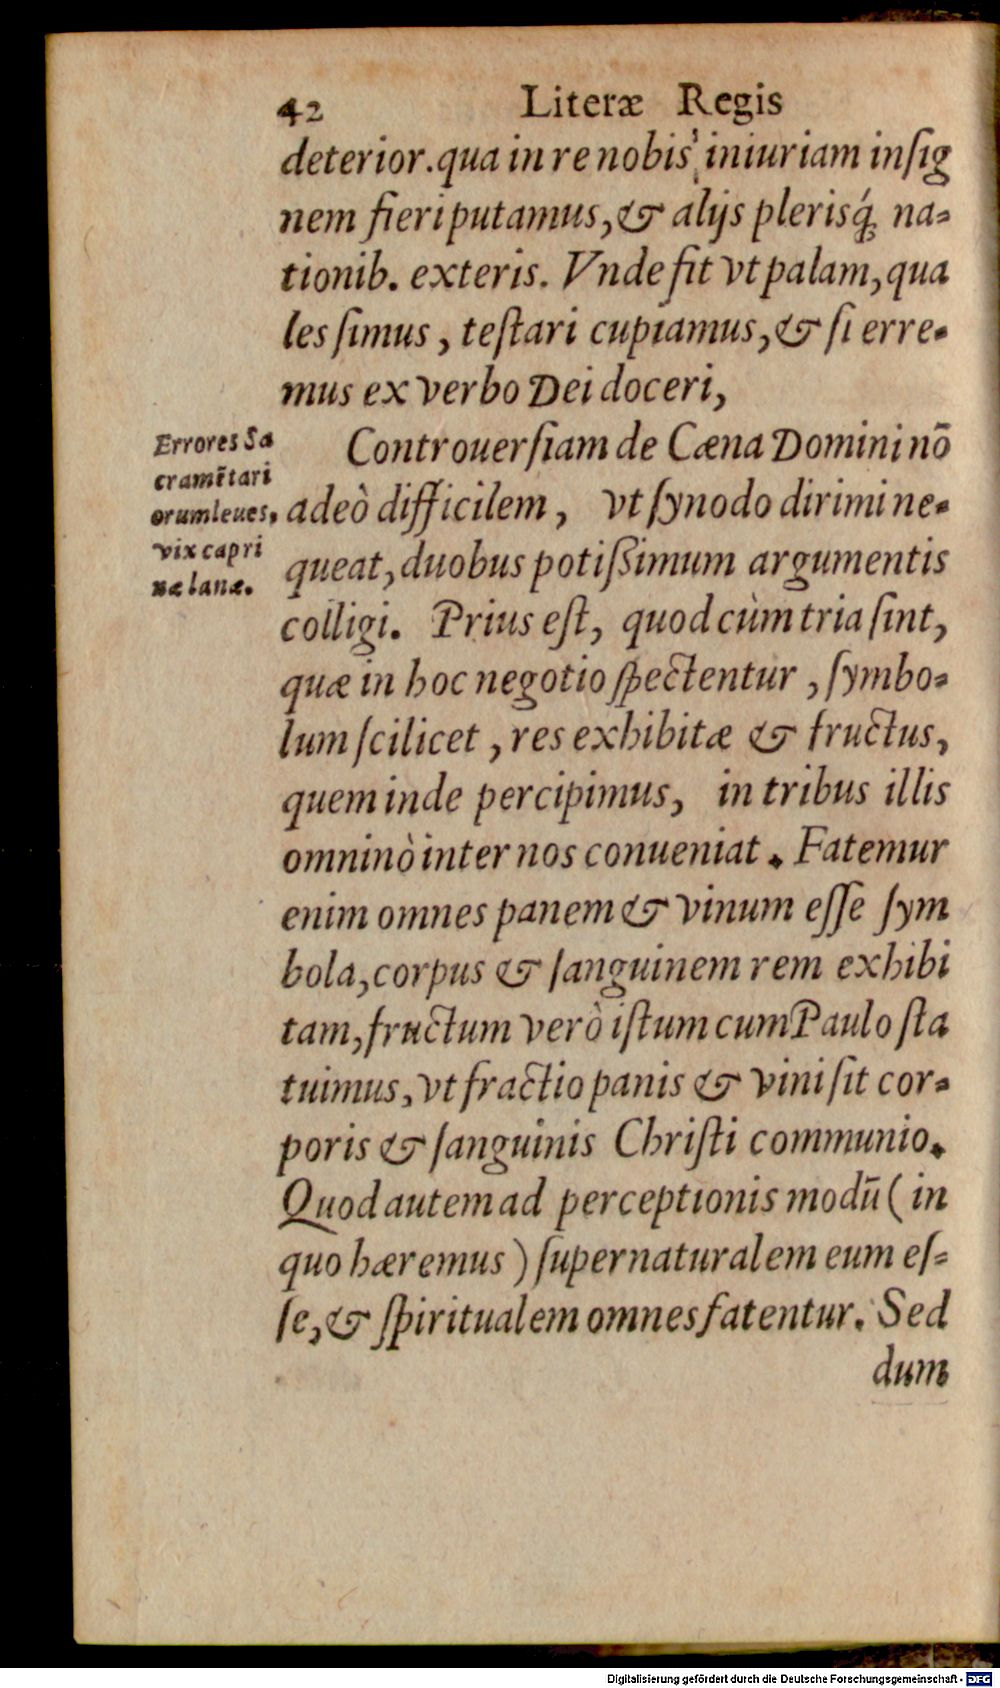 42 Literæ Regis
deterior. qua in re nobis iniuriam inſig
nem fieri putamus, & alijs plerisq́; na-
tionib. exteris. Vnde fit vt palam, qua
les ſimus, teſtari cupiamus, & ſi erre-
mus ex verbo Dei doceri,
Controuerſiam de Cæna Domini nō
adeò difficilem, vt ſynodo dirimi ne-
queat, duobus potiſsimum argumentis
colligi. Prius eſt, quod cùm tria ſint,
quæ in hoc negotio ſpectentur, ſymbo-
lum ſcilicet, res exhibitæ & fructus,
quem inde percipimus, in tribus illis
omninò inter nos conueniat. Fatemur
enim omnes panem & vinum eſſe ſym
bola, corpus & ſanguinem rem exhibi
tam, fructum verò iſtum cum Paulo ſta
tuimus, vt fractio panis & vini ſit cor-
poris & ſanguinis Chriſti communio.
Quod autem ad perceptionis modū (in
quo hæremus) ſupernaturalem eum eſ-
ſe, & ſpiritualem omnes fatentur. Sed
dum
Errores Sa
cramētari
orum leues,
vix capri
næ lanæ.
Digitalisierung gefördert durch die Deutsche Forschungsgemeinschaft - DFG